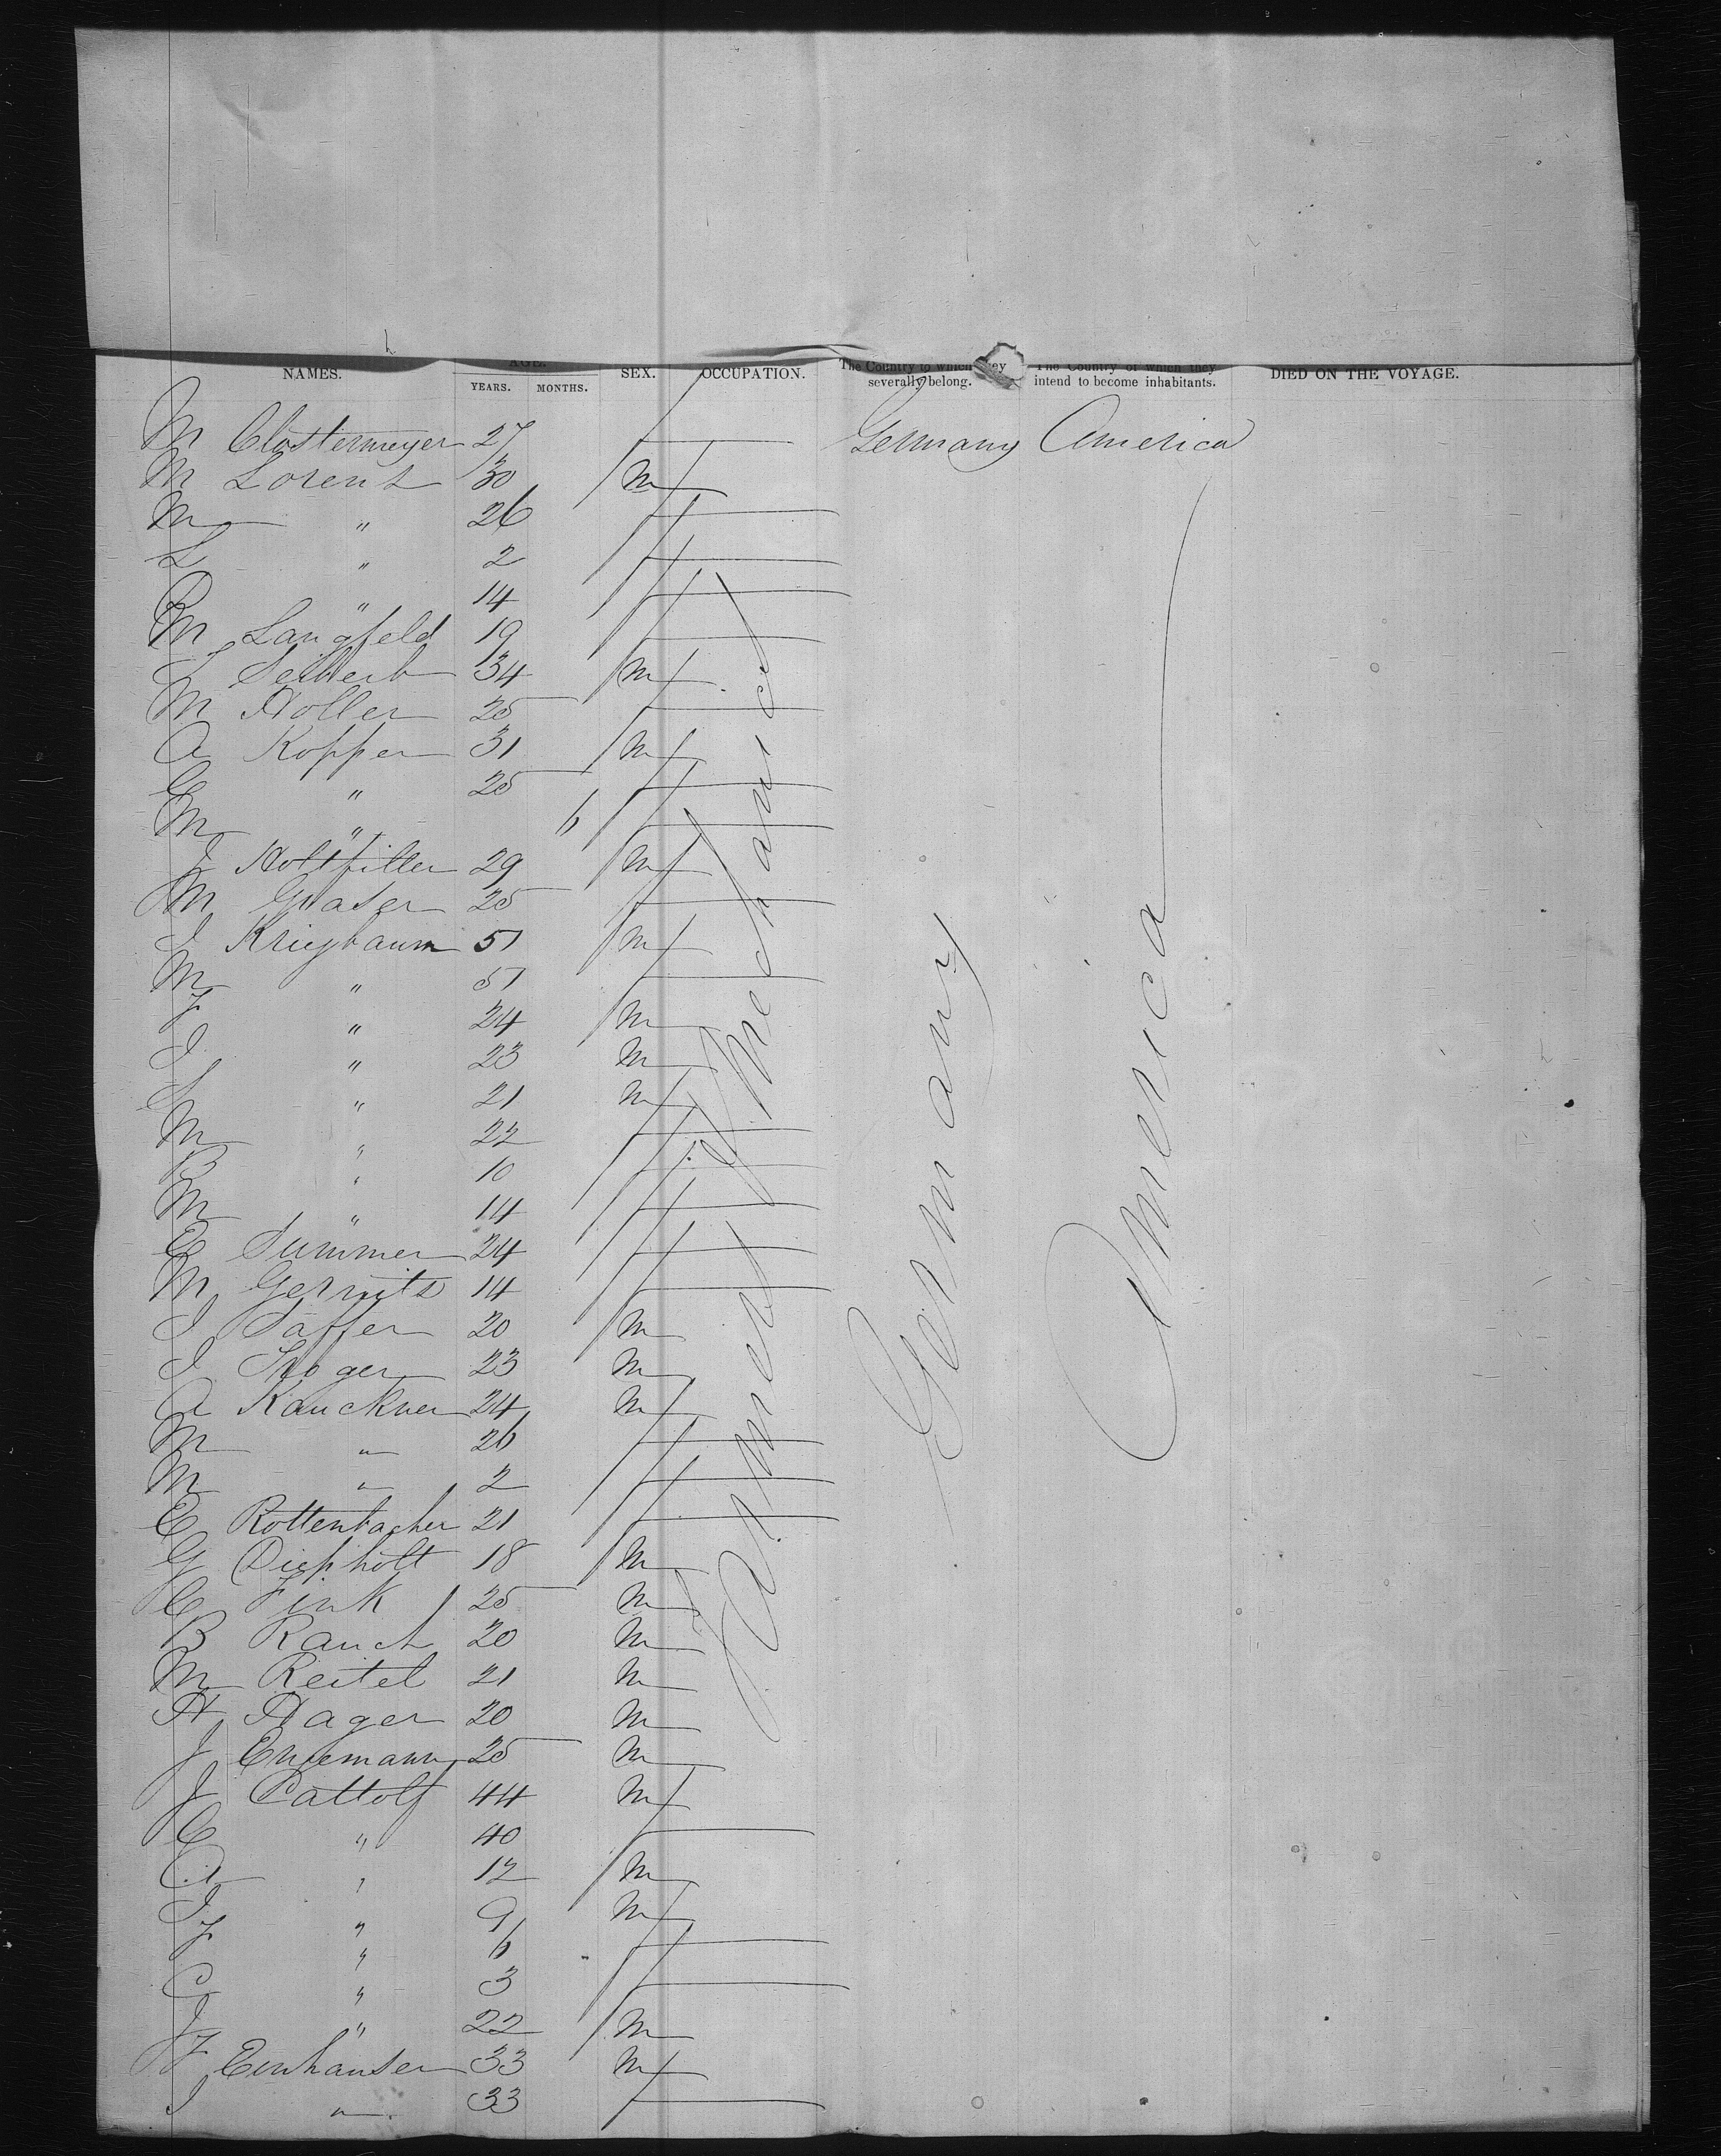 NAMES. AGE. SEX. OCCUPATION. The Country to which they severally belong. The Country of which they intend to become inhabitants. DIED ON THE VOYAGE.
YEARS. MONTHS.
M Clostermeyer 27 f Germany America
M Lorenz 30 m
M " 26 f
L " 2 f
R " 14 f
M Langfeld 19 f
L Seibert 34 m
M Holler 25 f
A Kopper 31 m
G " 25 f
M " 6 f
J Holtfiller 29 m
M Glaser 25 f
J Kriegbaum 51 m
M " 51 f
F " 24 m
J " 23 m
S " 21 m
M " 22 f
B " 10 f
M " 14 f
E Summer 24 f
M Gerrits 14 f
J Saffer 20 m
J Troger 23 m
A Kauckner 24 m
M " 26 f
M " 2 f
E Rottenbacher 21 f
G Diepholt 18 m
C Fink 25 m
B Rauch 20 m
M Reitel 21 m
H Hager 20 m
J Engemann 25 m
J Cattolf 44 m
C " 40 f
A " 12 m
J " 9 m
F " 6 f
C " 3 f
J " 22 m
F Eenhauser 33 m
J " 33 f
Farmers & Mechanics
Germany
America